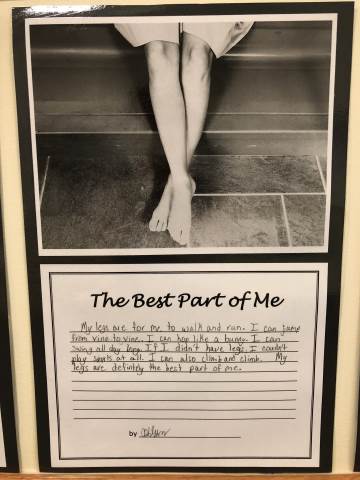 The Best Part of Me
My legs are for me to walk and run. I can jump
from vine to vine. I can hop like a bunny. I can
swing all day long. If I didn't have legs, I couldn't
play sports at all. I can also climb and climb. My
legs are definitely the best part of me.
by